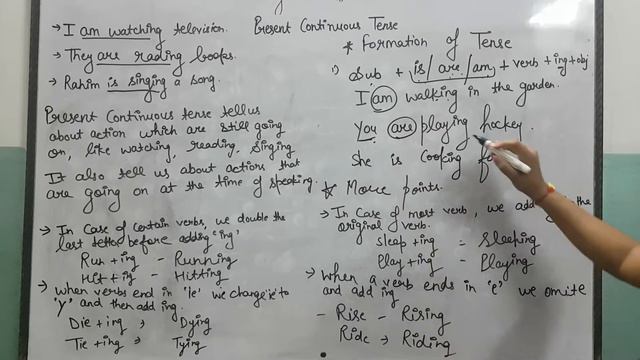 Present Continuous Tense
→ I am watching television.
→ They are reading books.
→ Rahim is singing a song.
Present Continuous tense tell us
about action which are still going
on, like watching, reading, singing
It also tell us about actions that
are going on at the time of speaking.
→ In Case of certain verbs, we double the
last letter before adding 'ing'
Run + ing - Running
Hit + ing - Hitting
→ when verbs end in 'ie' we change 'ie' to
'y' and then add ing.
Die + ing → Dying
Tie + ing → Tying
* Formation of Tense
1) Sub + is/are/am + verb + ing + obj
I am walking in the garden.
You are playing hockey.
She is cooking
* More points.
→ In Case of most verb, we add the
original verb.
Sleep + ing = Sleeping
Play + ing - Playing
→ When a verb ends in 'e' we omite
and add ing
- Rise - Rising
Ride → Riding